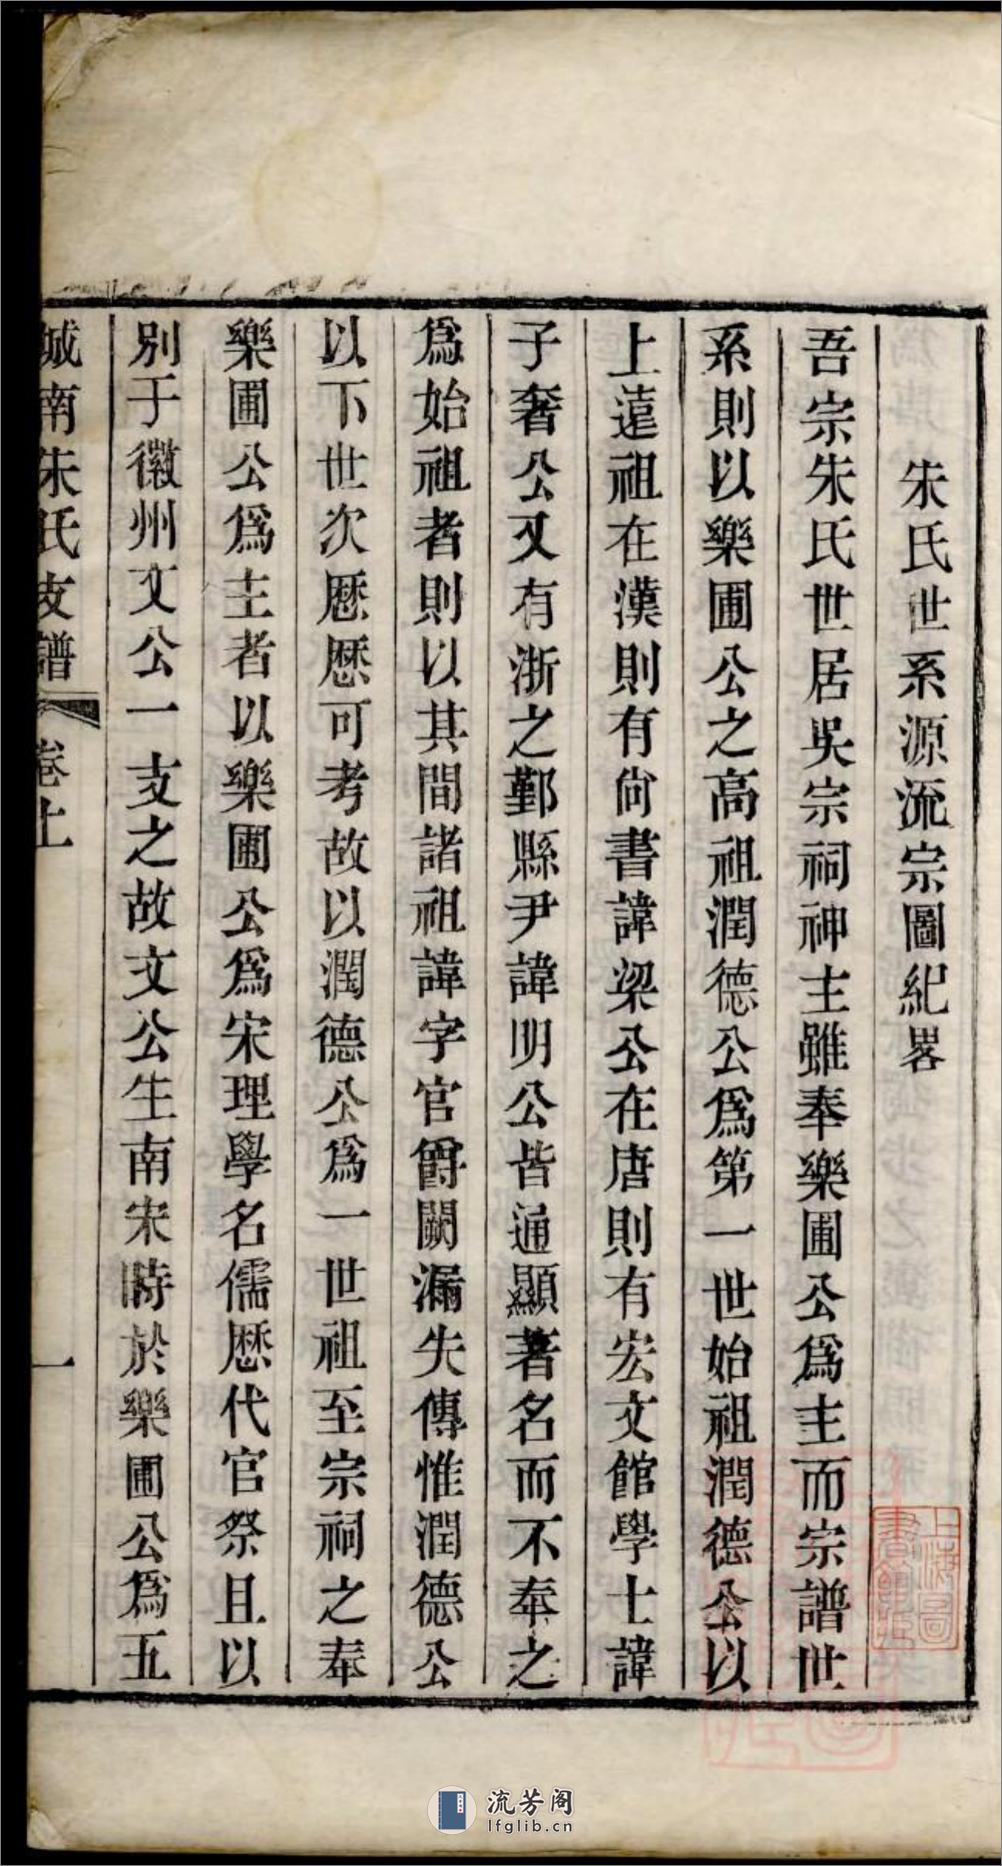 朱氏世系源流宗圖紀畧
吾宗朱氏世居吳宗祠神主雖奉樂圃公爲主而宗譜世
系則以樂圃公之高祖潤德公爲第一世始祖潤德公以
上遠祖在漢則有尙書諱梁公在唐則有宏文館學士諱
子奢公又有浙之鄞縣尹諱明公皆通顯著名而不奉之
爲始祖者則以其間諸祖諱字官爵闕漏失傳惟潤德公
以下世次歷歷可考故以潤德公爲一世祖至宗祠之奉
樂圃公爲主者以樂圃公爲宋理學名儒歷代官祭且以
別于徽州文公一支之故文公生南宋時於樂圃公爲五
城南朱氏支譜 卷上 一
上海圖書館藏
流芳阁
lfglib.cn